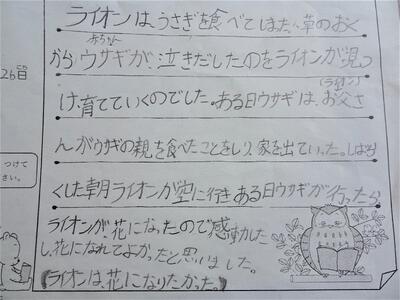 ライオンは、うさぎを食べてしまた、草のおく
から赤ちゃんウサギが、泣きだしたのをライオンが見つ
け、育てていくのでした。ある日ウサギは、お父さ(ライオン)
んがウサギの親を食べたことをしり、家を出ていった。しばら
くした朝ライオンが空に行き、ある日ウサギが行ったら
ライオンが、花になったので感動した
し、花になれてよかったと思いました。
(ライオンは、花になりたかった。)
26日
つけて
さい。